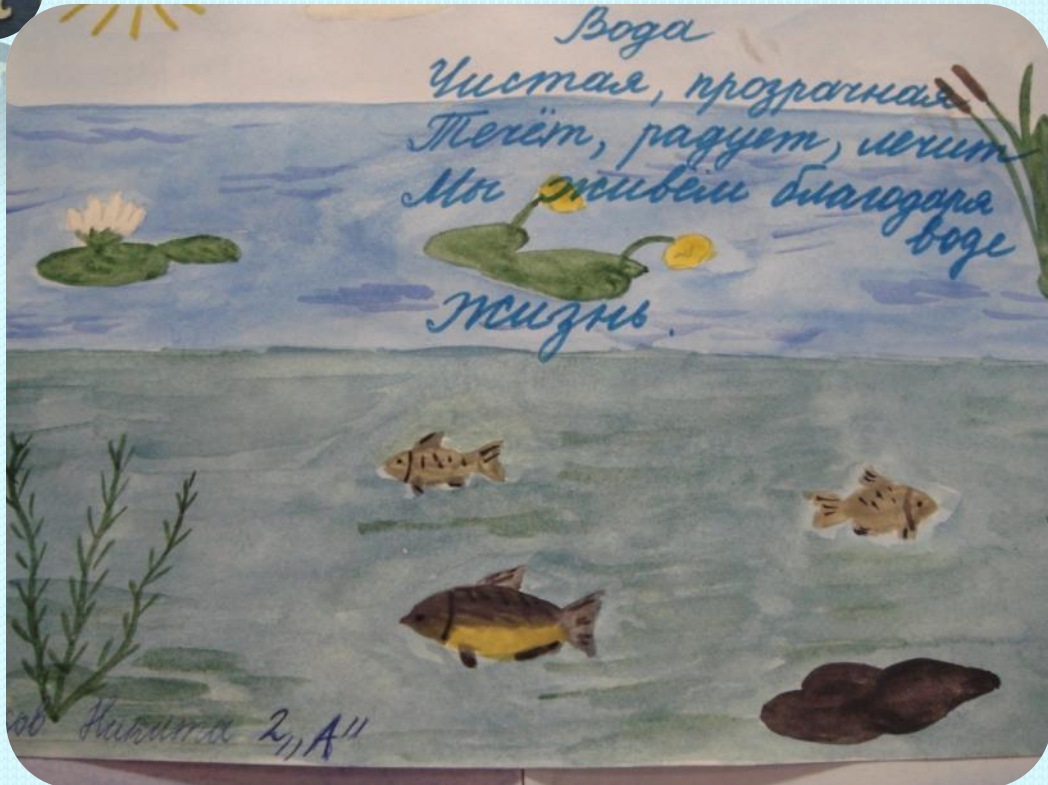 Вода
Чистая, прозрачная
Течёт, радует, лечит
Мы живём благодаря
воде
Жизнь.
Никита 2„А"